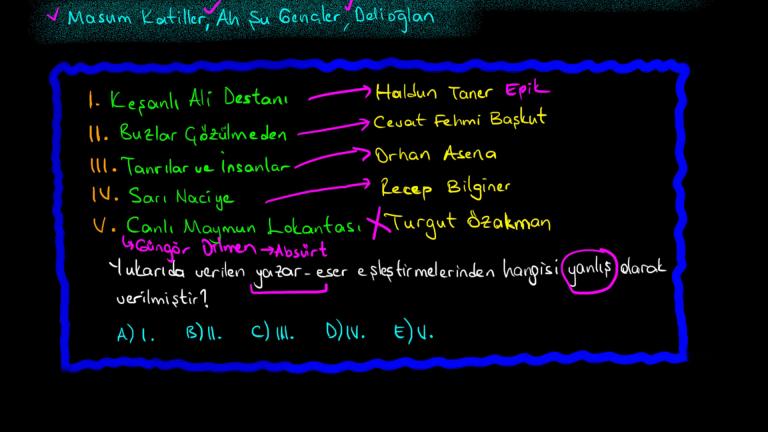 Masum Katiller, Ah Şu Gençler, Delioğlan
I. Keşanlı Ali Destanı Haldun Taner Epik
II. Buzlar Çözülmeden Cevat Fehmi Başkut
III. Tanrılar ve İnsanlar Orhan Asena
IV. Sarı Naciye Recep Bilginer
V. Canlı Maymun Lokantası Turgut Özakman
Güngör Dilmen → Absürt
Yukarıda verilen yazar-eser eşleştirmelerinden hangisi yanlış olarak
verilmiştir?
A) I. B) II. C) III. D) IV. E) V.